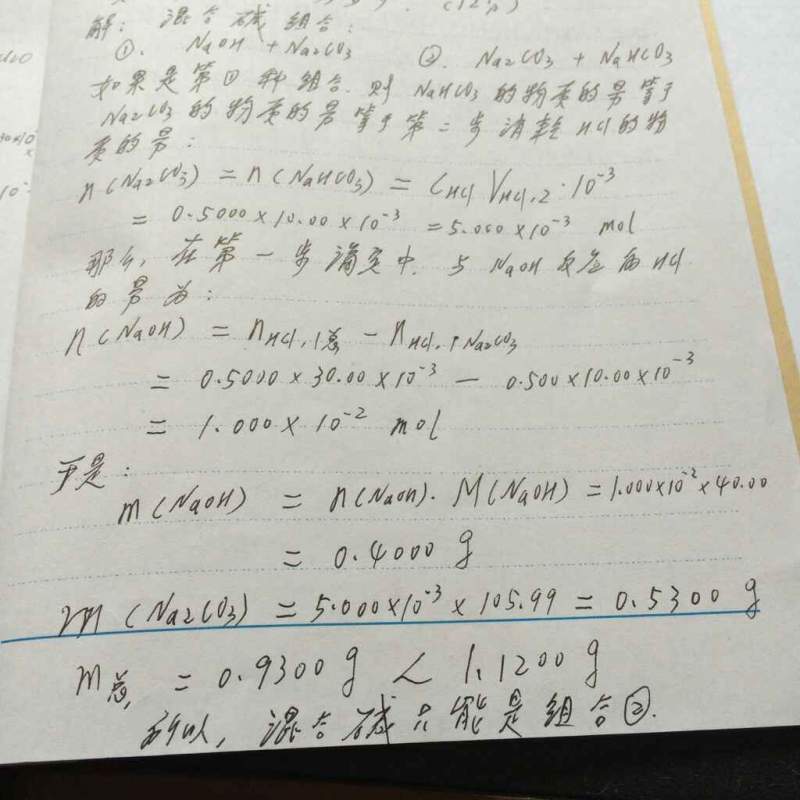 (12分)
解: 混合碱组合:
①. NaOH + Na2CO3 ②. Na2CO3 + NaHCO3
如果是第①种组合. 则 NaHCO3 的物质的量等于
Na2CO3 的物质的量等于第二步消耗 HCl 的物
质的量:
n(Na2CO3) = n(NaHCO3) = CHCl VHCl,2 · 10⁻³
= 0.5000 × 10.00 × 10⁻³ = 5.000 × 10⁻³ mol
那么, 在第一步滴定中. 与 NaOH 反应的 HCl
的量为:
n(NaOH) = nHCl,1总 − nHCl,1Na2CO3
= 0.5000 × 30.00 × 10⁻³ − 0.500 × 10.00 × 10⁻³
= 1.000 × 10⁻² mol
于是:
m(NaOH) = n(NaOH)· M(NaOH) = 1.000×10⁻² × 40.00
= 0.4000 g
m(Na2CO3) = 5.000×10⁻³ × 105.99 = 0.5300 g
m总 = 0.9300 g < 1.1200 g
所以, 混合碱只能是组合②.